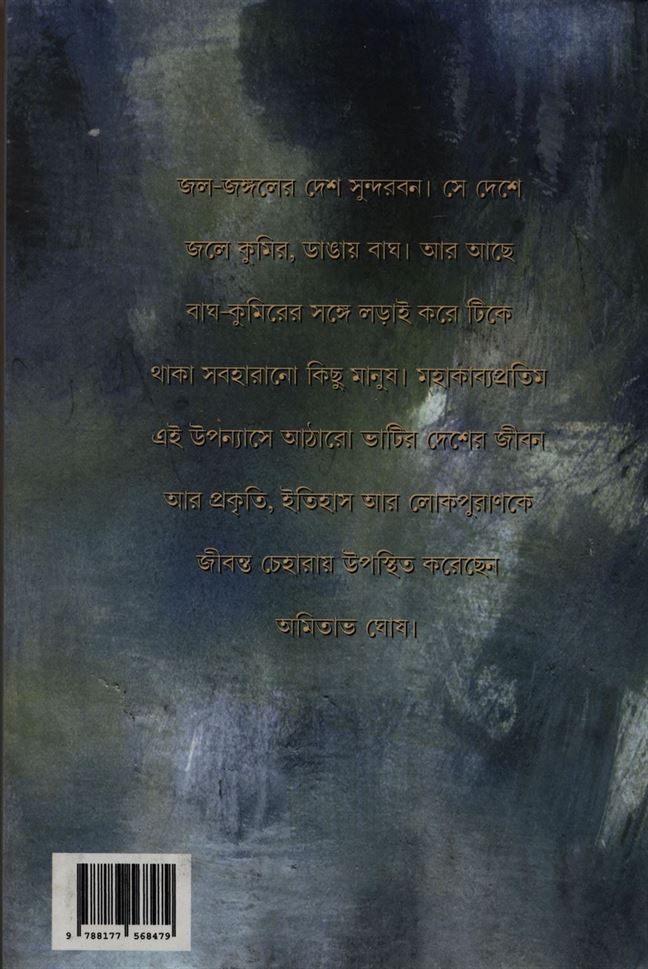 জল-জঙ্গলের দেশ সুন্দরবন। সে দেশে
জলে কুমির, ডাঙায় বাঘ। আর আছে
বাঘ-কুমিরের সঙ্গে লড়াই করে টিকে
থাকা সবহারানো কিছু মানুষ। মহাকাব্যপ্রতিম
এই উপন্যাসে আঠারো ভাটির দেশের জীবন
আর প্রকৃতি, ইতিহাস আর লোকপুরাণকে
জীবন্ত চেহারায় উপস্থিত করেছেন
অমিতাভ ঘোষ।
9 788177 568479